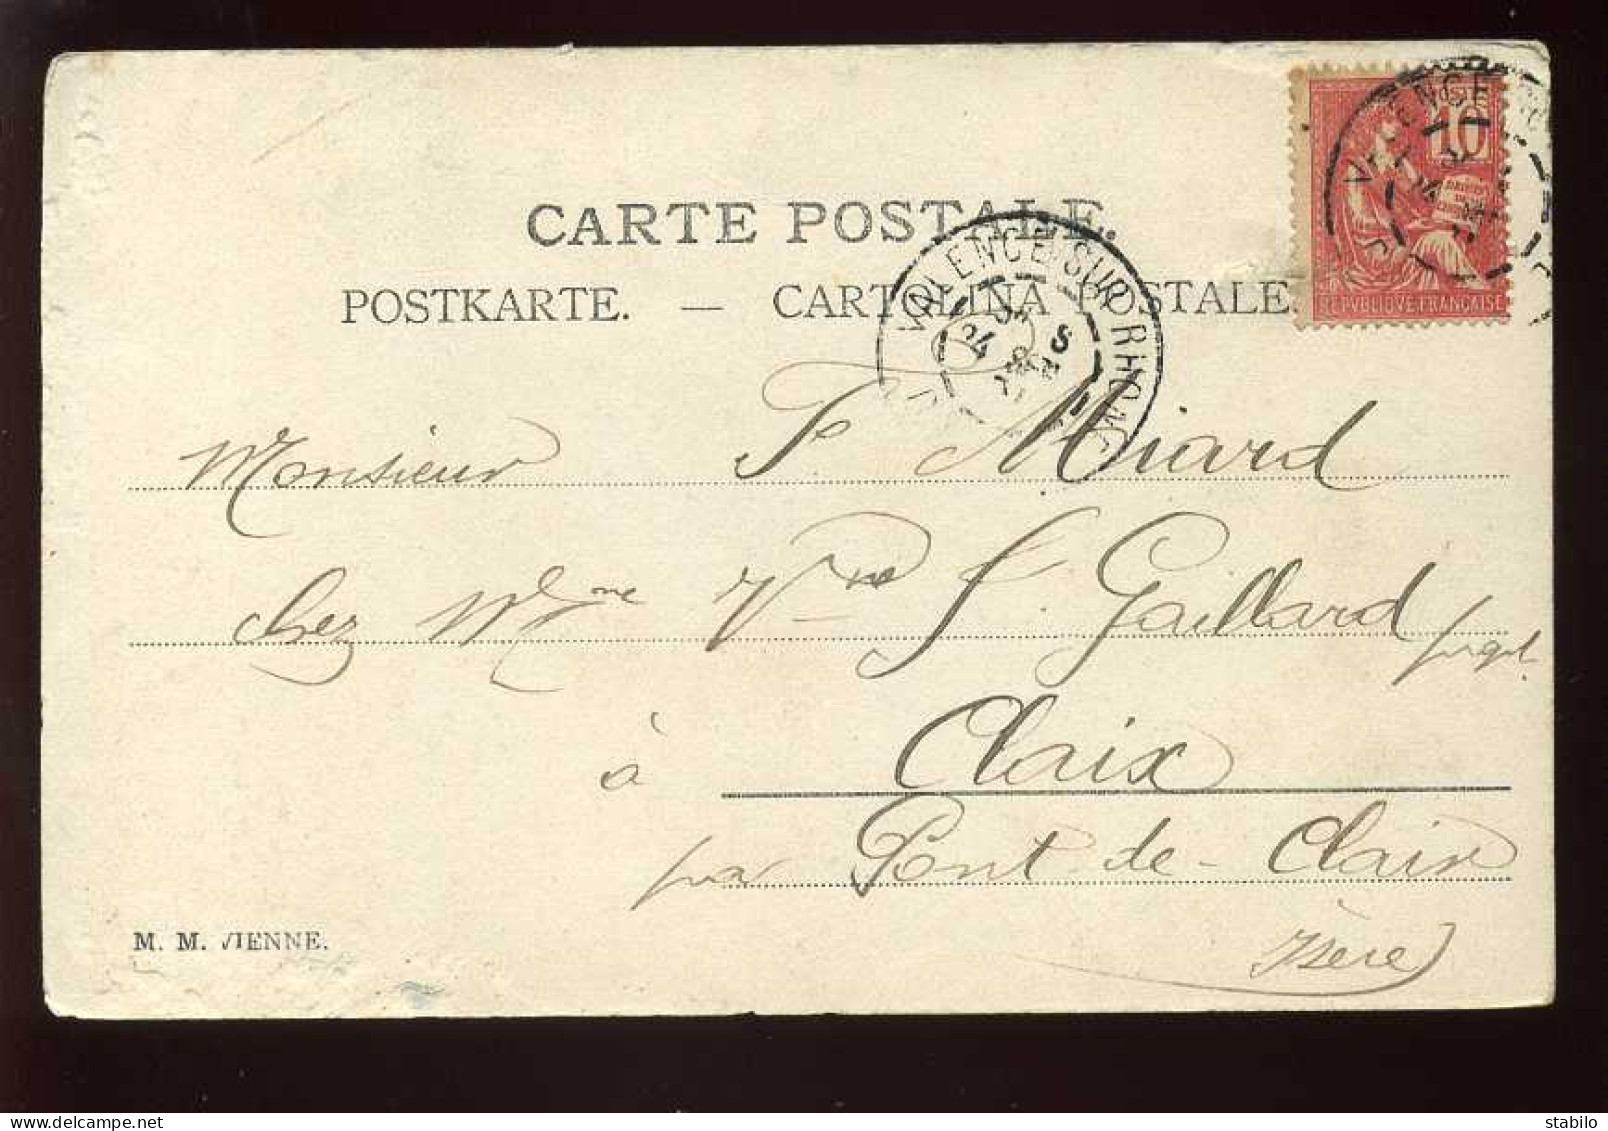 CARTE POSTALE.
POSTKARTE. — CARTOLINA POSTALE.
10
REPVBLIQVE FRANÇAISE
VALENCE
VALENCE SUR RHONE
Monsieur Fs Miard
chez Mme Vve J. Gaillard
à Claix
par Pont-de-Claix
Isère)
M. M. VIENNE.
stabilo
delcampe.net